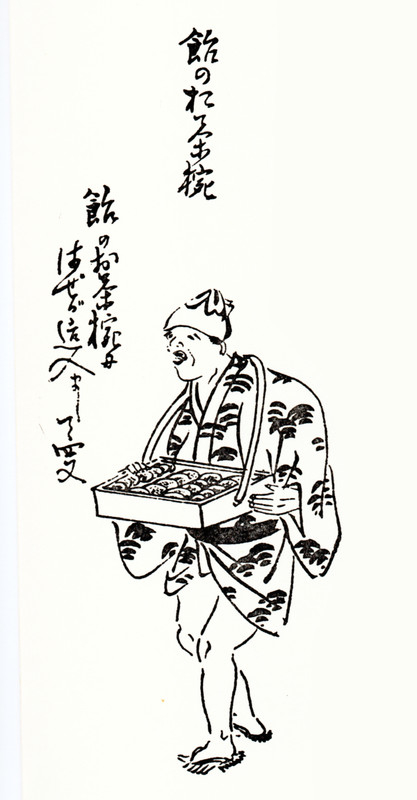 飴のお茶椀
飴のお茶椀に
はぜが這入まして四文